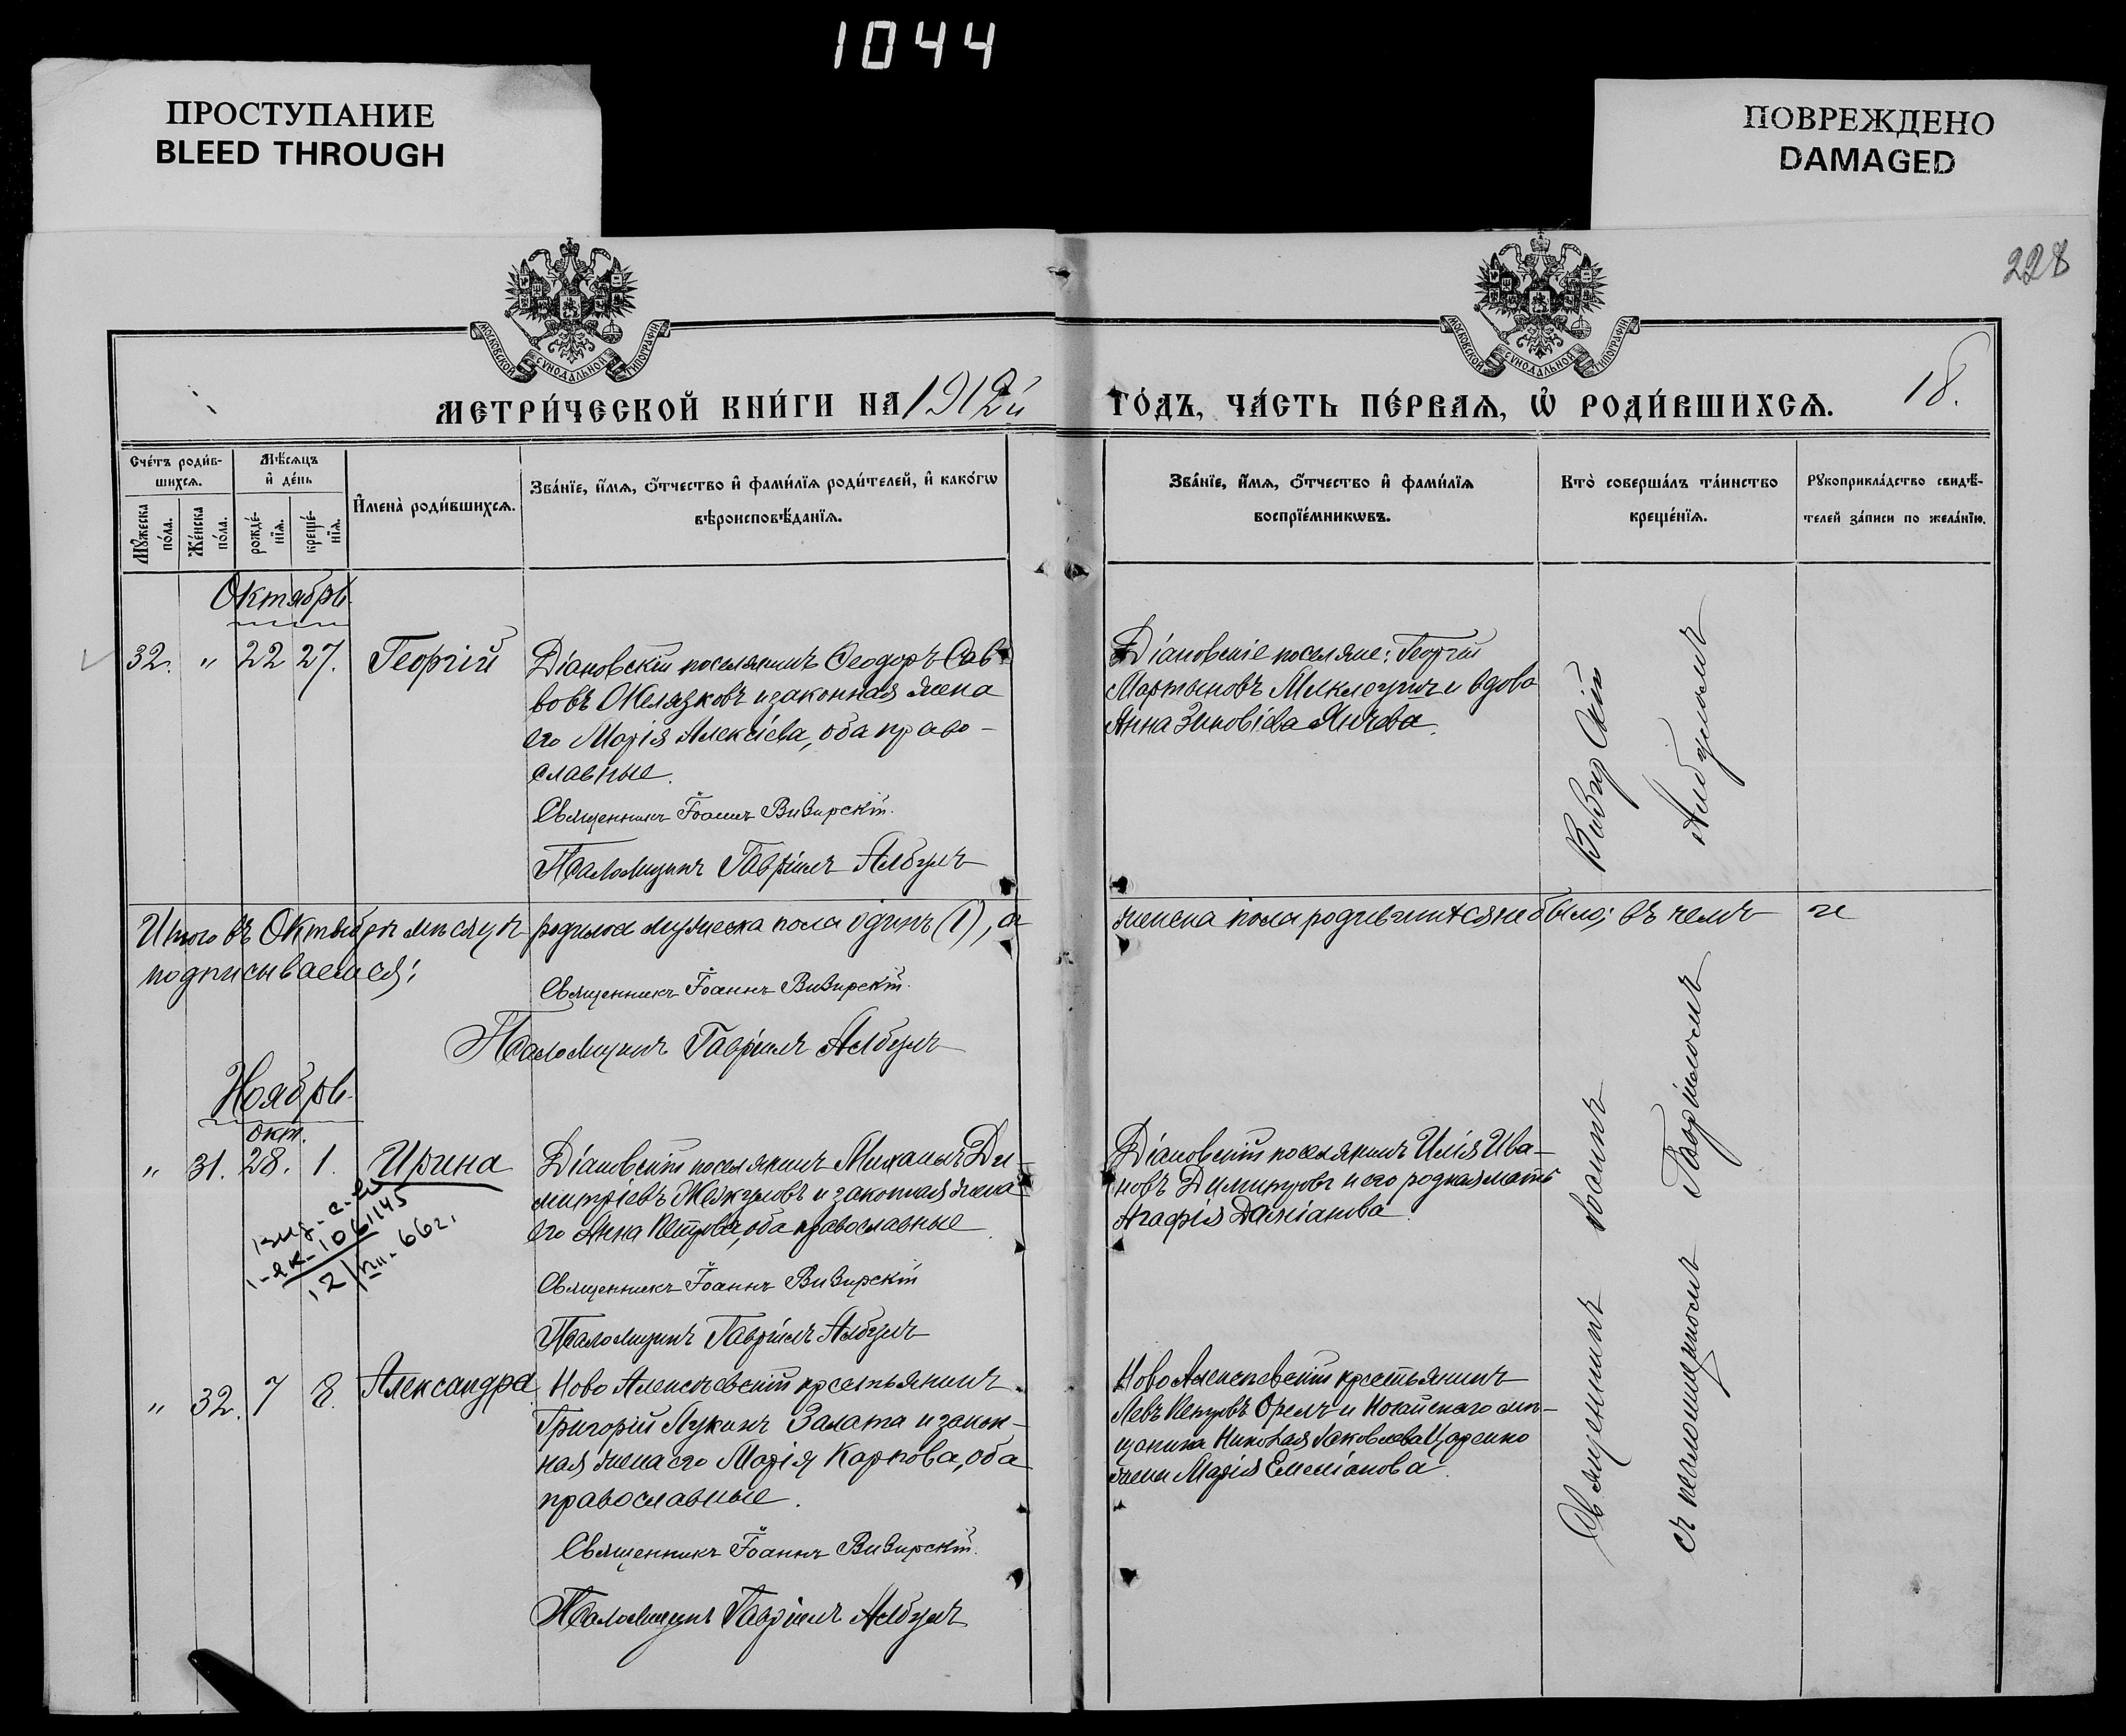 1044
ПРОСТУПАНИЕ
BLEED THROUGH
ПОВРЕЖДЕНО
DAMAGED
228
МОСКОВСКОЙ СѴНОДАЛЬНОЙ ТИПОГРАФІИ
МОСКОВСКОЙ СѴНОДАЛЬНОЙ ТИПОГРАФІИ
МЕТРИ́ЧЕСКОЙ КНИ́ГИ НА 1912й ГО́ДЪ, ЧА́СТЬ ПЕ́РВАЯ, Ѡ҆ РОДИ́ВШИХСЯ.
18.
Сче́тъ роди́в-
шихсѧ.
Мꙋ́жеска по́ла.
Же́нска по́ла.
Мѣ́сѧцъ
и҆ де́нь
рожде́-
нїѧ.
креще́-
нїѧ.
И҆мена̀ роди́вшихсѧ.
Зва́нїе, и҆́мѧ, ѻ҆́тчество и҆ фами́лїѧ роди́телей, и҆ како́гѡ
вѣроисповѣ́данїѧ.
Зва́нїе, и҆́мѧ, ѻ҆́тчество и҆ фами́лїѧ
воспрїе́мникѡвъ.
Кто̀ соверша́лъ та́инство
креще́нїѧ.
Рꙋкоприкла́дство свидѣ́-
телей за́писи по жела́нїю.
Октябрь
32. " 22 27. Георгій
Діановскій поселянинъ Ѳеодоръ Сав-
вовъ Желязковъ и законная жена
его Марія Алексіева, оба право-
славные.
Священникъ Іоаннъ Визирскій.
Псаломщикъ Гавріилъ Албулъ
Діановскіе поселяне: Георгій
Мартыновъ и вдова
Анна Зиновіева Янчева.
Визирскій
Албуломъ
Итого въ Октябрѣ мѣсяцѣ родилось мужеска пола одинъ (1), а женска пола родившихся не было; въ чемъ и
подписываемся:
Священникъ Іоаннъ Визирскій.
Псаломщикъ Гавріилъ Албулъ
Ноябрь
окт.
" 31. 28. 1. Ирина
Діановскій поселянинъ Михаилъ Ди-
митріевъ и законная жена
его Анна Петрова, оба православные
Священникъ Іоаннъ Визирскій
Псаломщикъ Гавріилъ Албулъ
1061145
12 66г.
Діановскій поселянинъ Илія Ива-
новъ Димитровъ и его родная мать
Агафія Даміанова.
" 32. 7 8. Александра
Ново Алексѣевскій крестьянинъ
Григорій Лукинъ Залата и закон-
ная жена его Марія Карпова, оба
православные.
Священникъ Іоаннъ Визирскій.
Псаломщикъ Гавріилъ Албулъ
Ново Алексѣевскій крестьянинъ
Левъ Петровъ Орелъ и Ногайскаго мѣ-
щанина Николая Іаковлева Царенко
жена Марія Емеліанова.
Священникъ Іоаннъ
съ псаломщикомъ Гавріиломъ